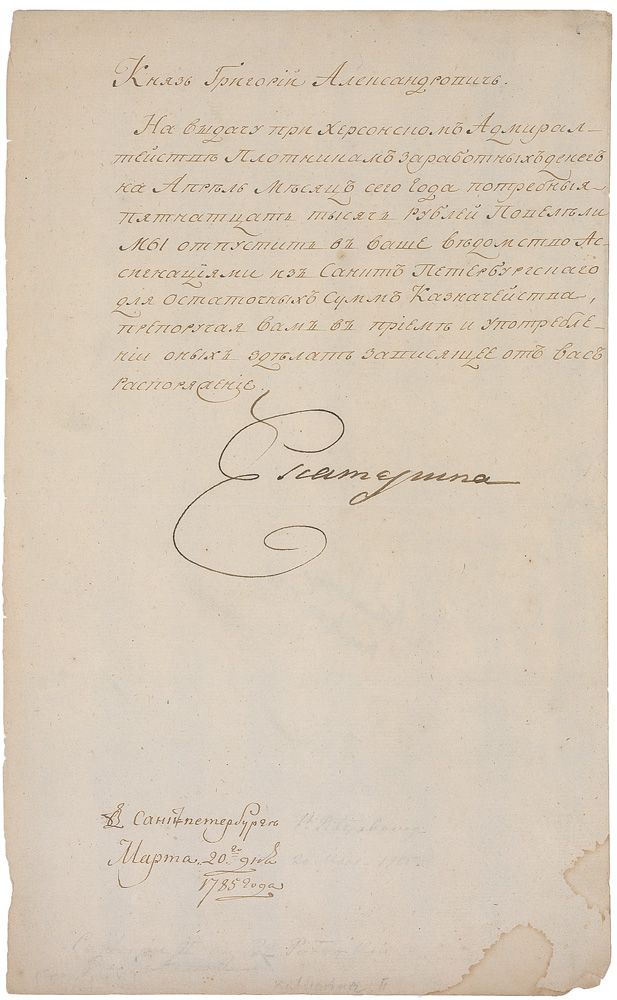 Князь Григорій Александровичь.
На выдачу при Херсонскомъ Адмирал-
тействѣ Плотникамъ заработныхъ денегъ
на Апрѣль Мѣсяцъ сего года потребныя
пятнатцать тысячь рублей Повелѣли
Мы отпустить въ ваше вѣдомство Ас-
сигнаціями изъ Санктъ Петербургскаго
для остаточныхъ Суммъ Казначейства,
препоручая вамъ въ пріемѣ и употребле-
ніи оныхъ здѣлать зависящее отъ васъ
распоряженіе.
Екатерина
Въ Санктпетербургѣ
Марта 20.го дня
1785 года